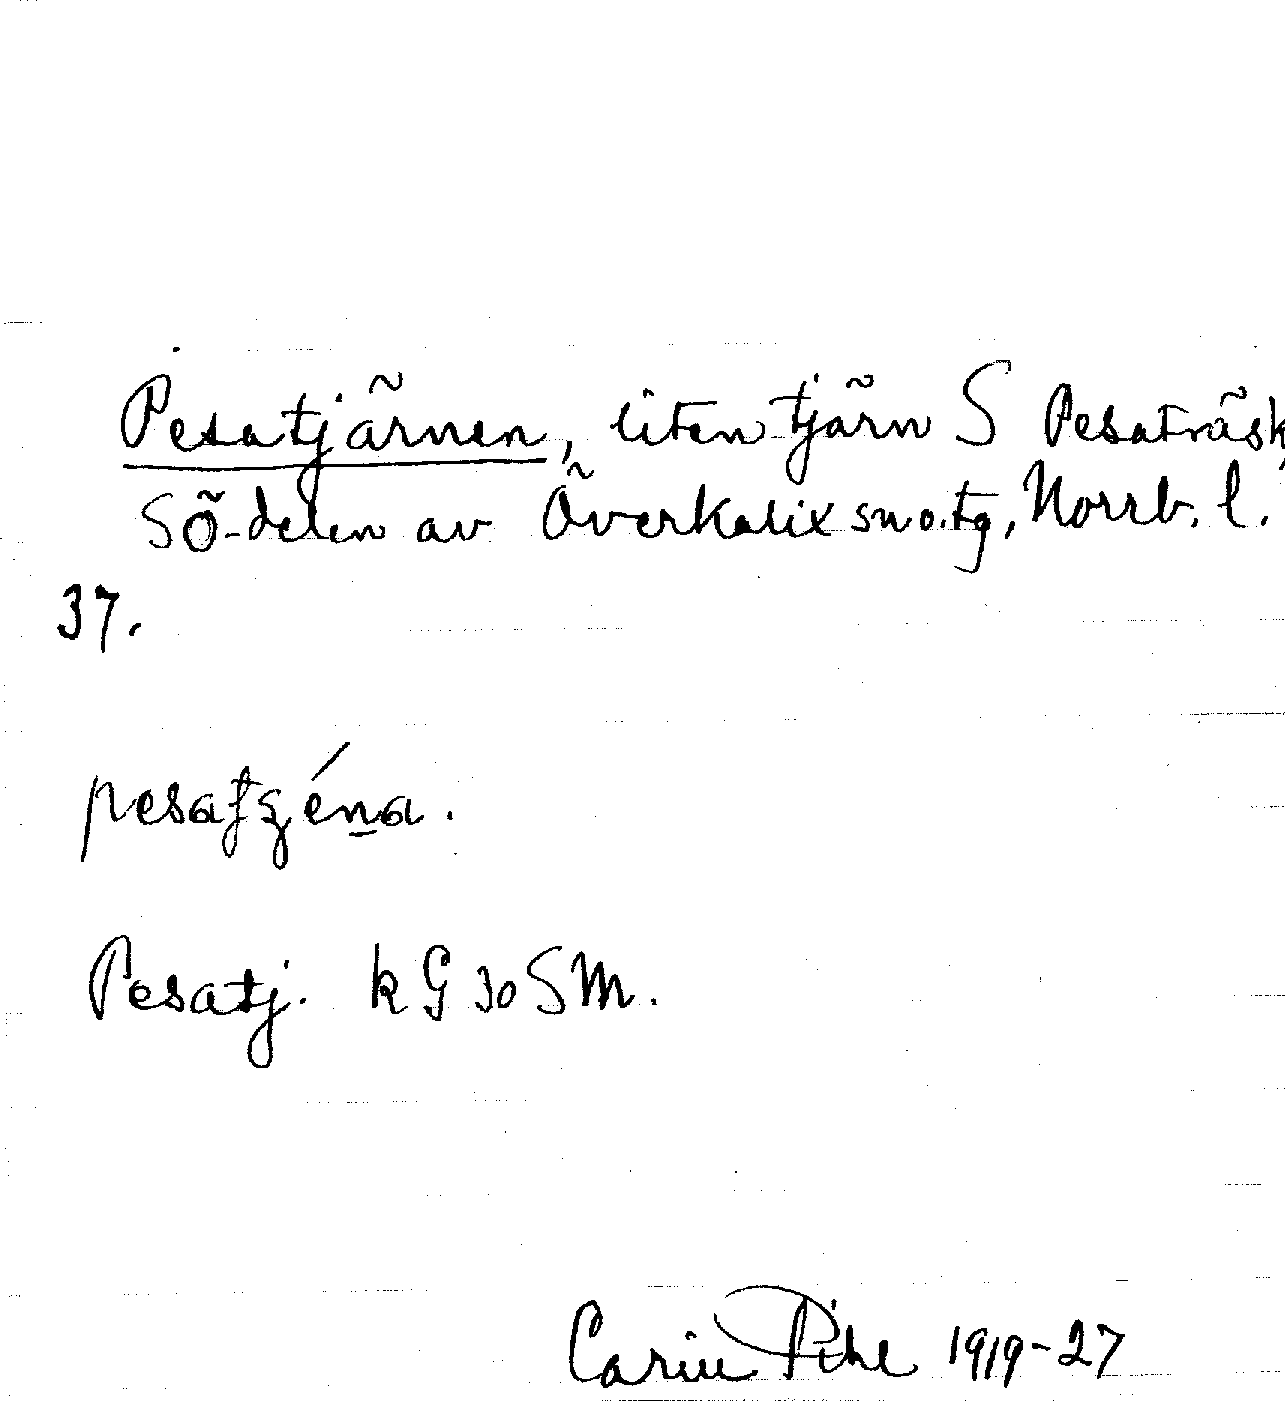 Pesatjärnen, liten tjärn S Pesaträsk,
SÖ-delen av Överkalix sn o. tg, Norrb. l.
37.
Pesatj. kG 30 SM.
Carin Pihl 1919-27